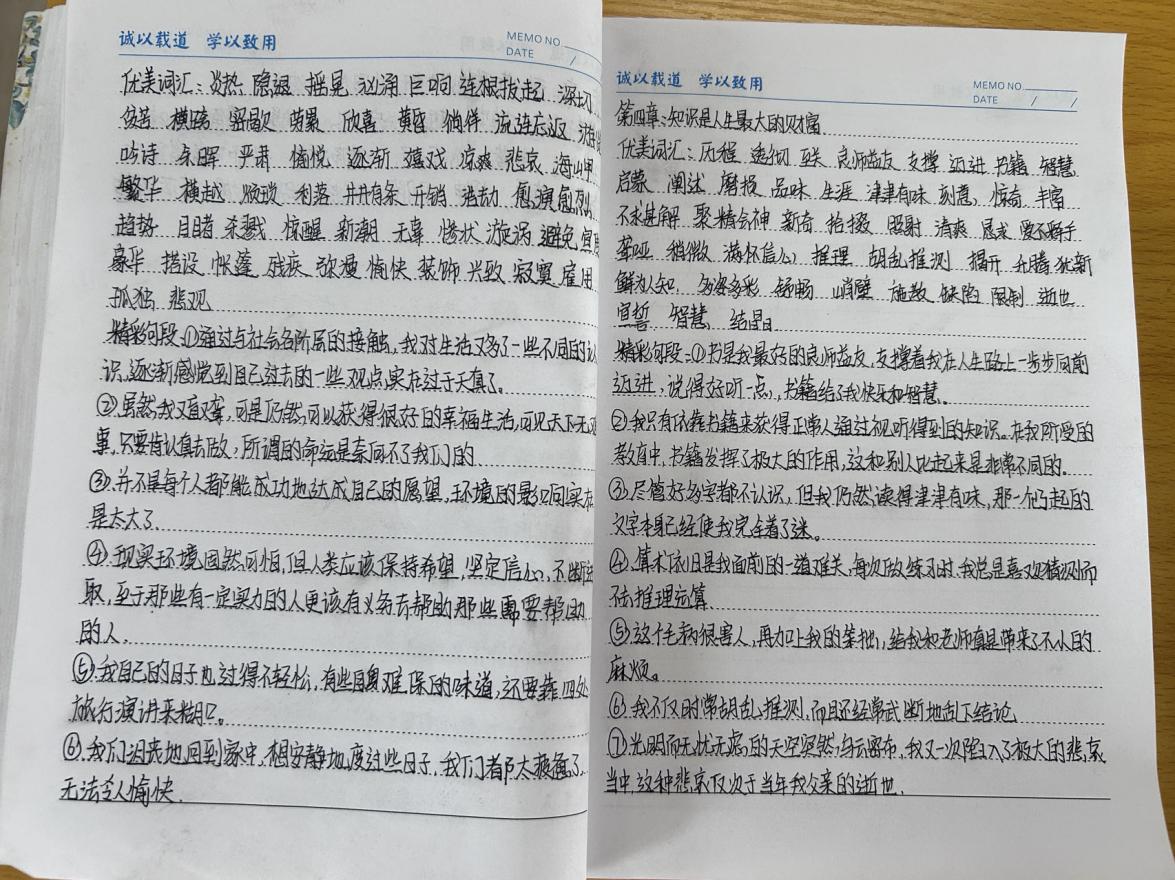 诚以载道 学以致用
MEMO NO.
DATE / 
优美词汇：炎热 隐退 摇晃 汹涌 巨响 连根拔起 深切
横跨 弱 欣喜 黄昏 徜徉 流连忘返
吟诗 余晖 严肃 愉悦 逐渐 嬉戏 凉爽 悲哀 海山甲
繁华 横越 烦琐 利落 井井有条 开销 浩劫 愈演愈烈
趋势 目睹 杀戮 惊醒 新潮 无辜 惨状 漩涡 避免
豪华 搭设 帐篷 残疾 弥漫 愉快 装饰 兴致 寂寞 雇用
孤独 悲观
精彩句段：①通过与社会各阶层的接触，我对生活又多了一些不同的认
识，逐渐感觉到自己过去的一些观点，实在过于天真了。
②虽然我又盲又聋，可是仍然可以获得很好的幸福生活，可见天下无
事，只要肯认真去做，所谓的命运是奈何不了我们的
③并不是每个人都能成功地达成自己的愿望，环境的影响实在
是太大了。
④现实环境固然可怕，但人类应该保持希望，坚定信心，不断进
取，至于那些有一定实力的人更该有义务去帮助那些需要帮助
的人。
⑤我自己的日子也过得不轻松，有些自身难保的味道，还要靠四处
旅行演讲来糊口。
⑥我们沮丧地回到家中，想安静地度过些日子，我们都太疲惫了，
无法令人愉快．
诚以载道 学以致用
MEMO NO.
DATE / /
第四章：知识是人生最大的财富
优美词汇：历程 透彻 联 良师益友 支撑 迈进 书籍 智慧
启蒙 阐述 磨损 品味 生涯 津津有味 刻意 惊奇 丰富
不求甚解 聚精会神 新奇 拾掇 照射 清爽 恳求 爱不释手
聋哑 稍微 满怀信心 推理 胡乱推测 揭开 升腾 犹新
鲜为人知 多姿多彩 舒畅 峭壁 施教 缺陷 限制 逝世
宣誓 智慧 结晶
精彩句段：①书是我最好的良师益友，支撑着我在人生路上一步步向前
迈进，说得好听一点，书籍给了我快乐和智慧。
②我只有依靠书籍来获得正常人通过视听得到的知识。在我所受的
教育中，书籍发挥了极大的作用，这和别人比起来是非常不同的。
③尽管好多字都不认识，但我仍然读得津津有味，那一个个凸起的
文字本身已经使我完全着了迷。
④算术依旧是我面前的一道难关，每次做练习时，我总是喜欢猜测而
不去推理运算
⑤这个毛病很害人，再加上我的笨拙，给我和老师真是带来了不小的
麻烦。
⑥我不仅时常胡乱推测，而且还经常武断地乱下结论
⑦光明而无忧无虑的天空突然乌云密布，我又一次陷入了极大的悲哀
当中，这种悲哀仅次于当年我父亲的逝世．